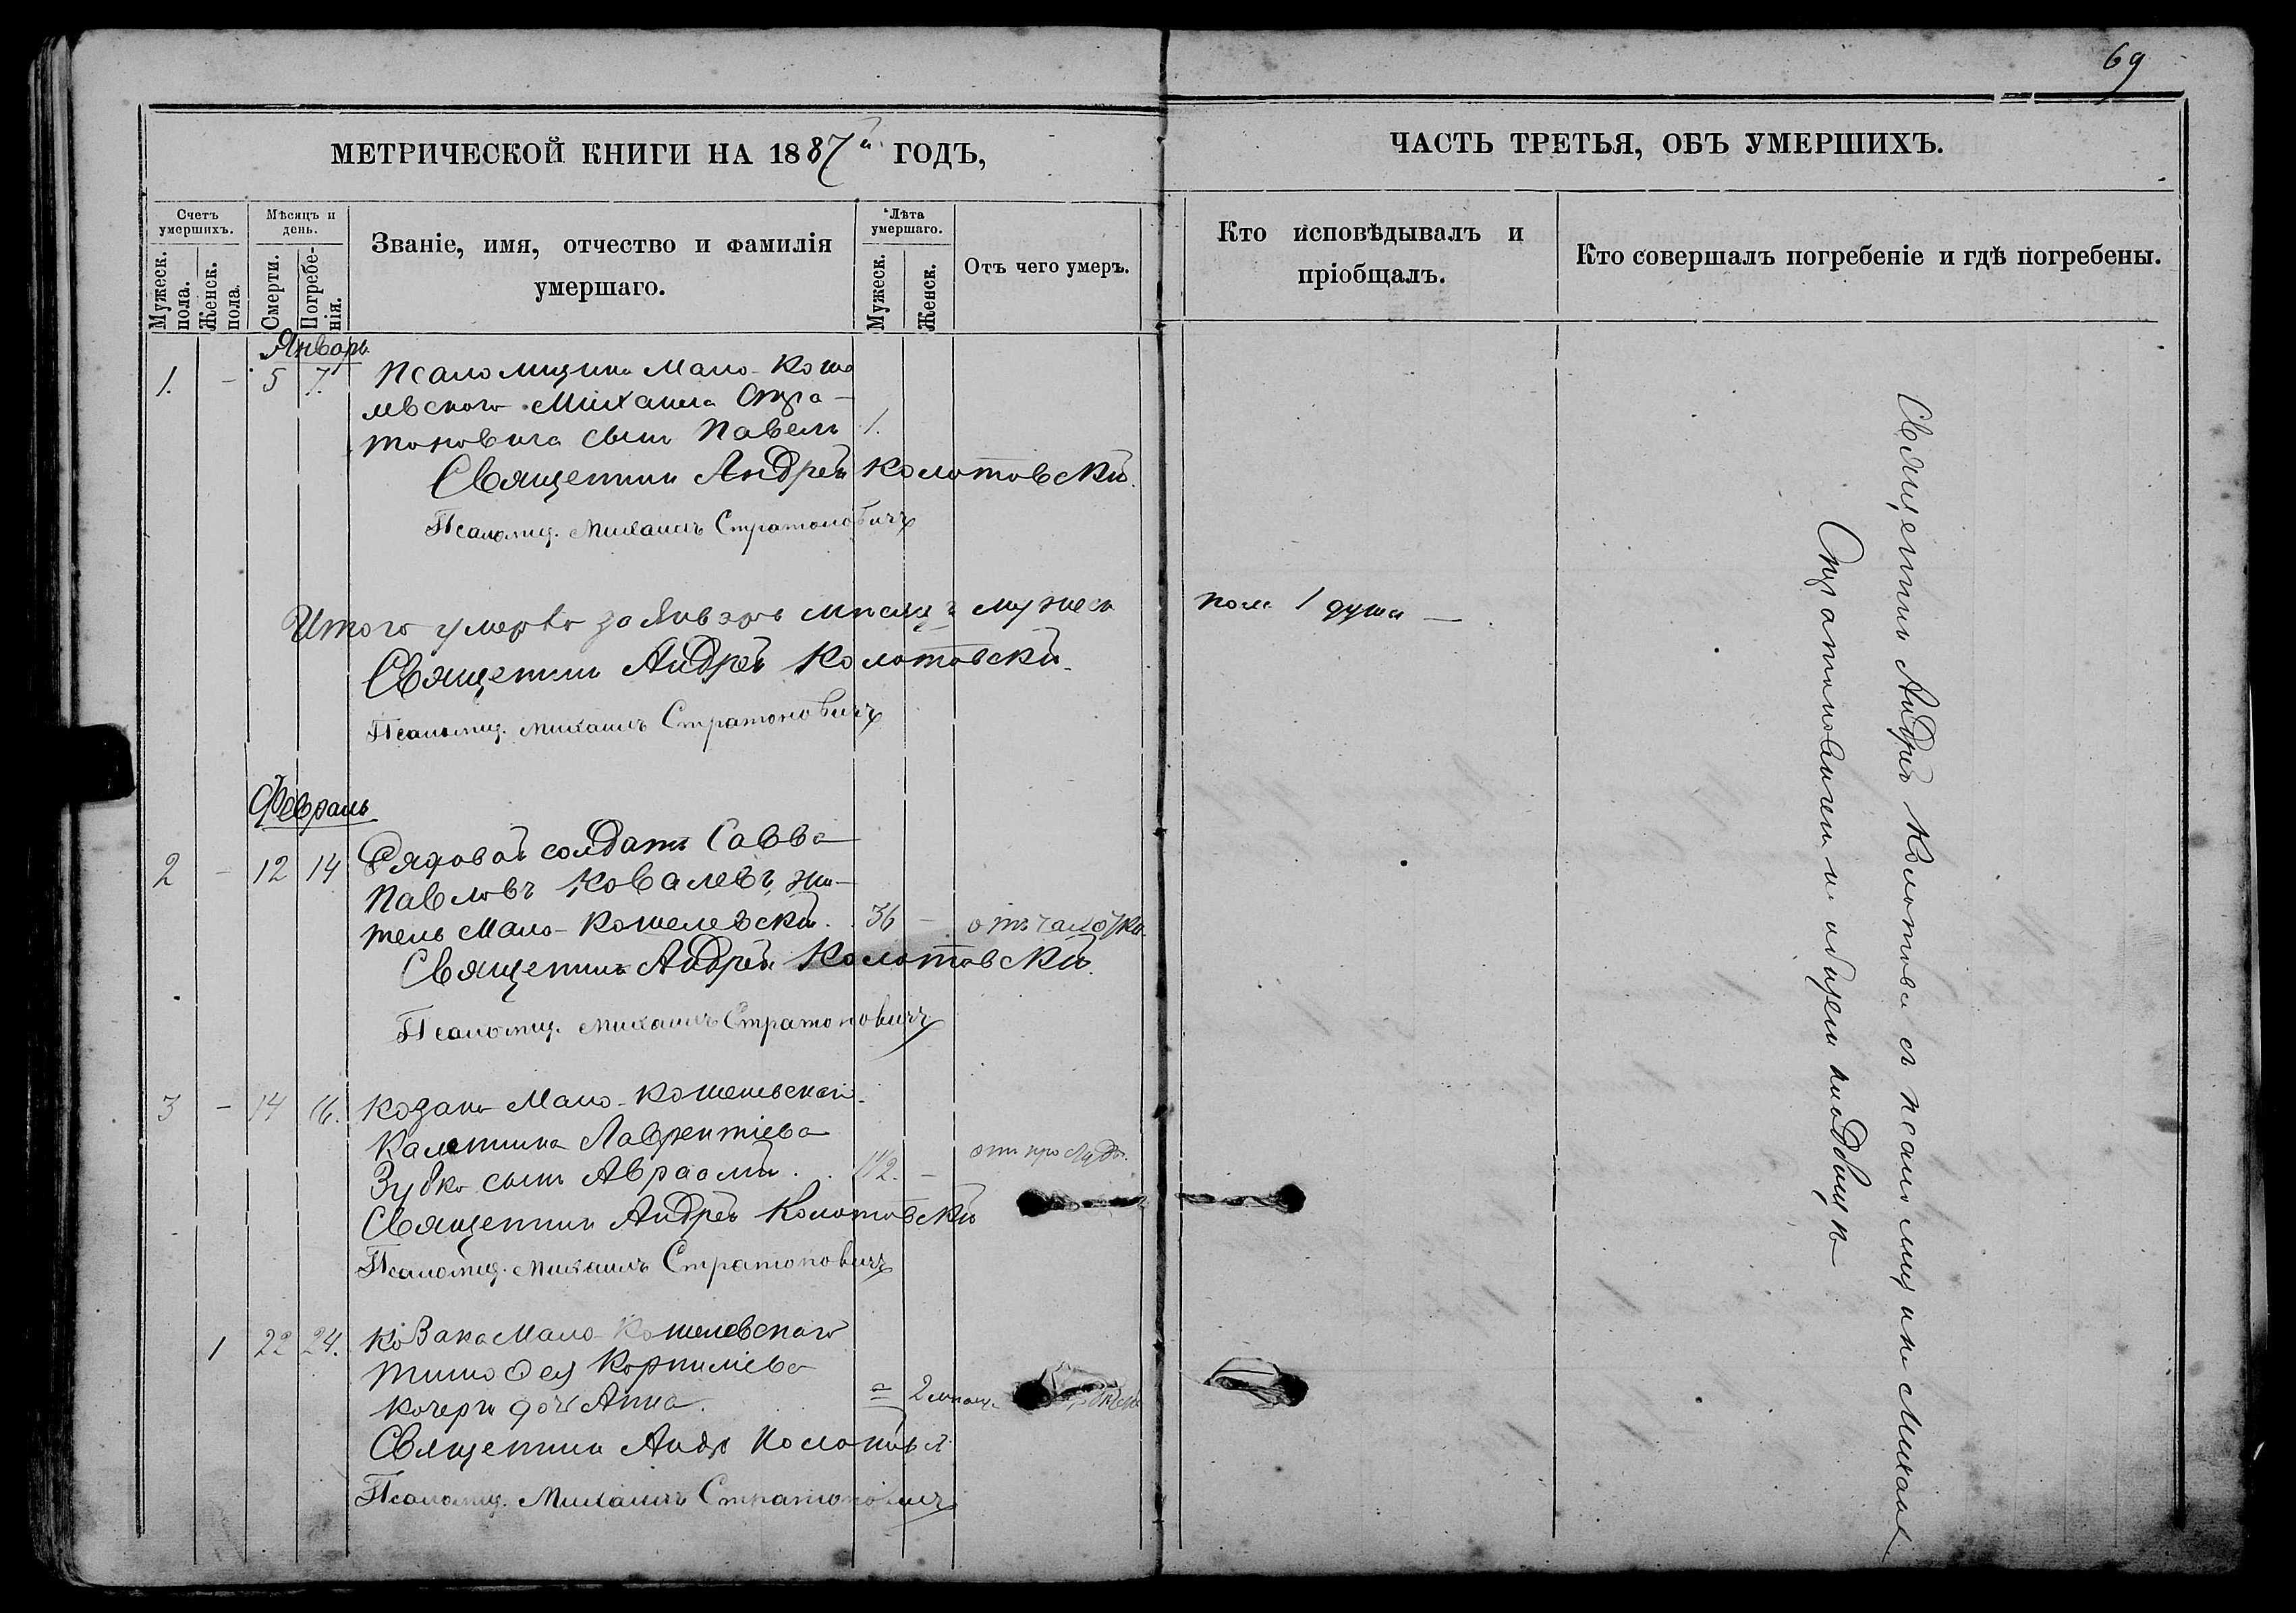 69
МЕТРИЧЕСКОЙ КНИГИ НА 1887й ГОДЪ,
ЧАСТЬ ТРЕТЬЯ, ОБЪ УМЕРШИХЪ.
Счетъ умершихъ.
Мѣсяцъ и день.
Званіе, имя, отчество и фамилія умершаго.
Лѣта умершаго.
Отъ чего умеръ.
Кто исповѣдывалъ и пріобщалъ.
Кто совершалъ погребеніе и гдѣ погребены.
Мужеск. пола.
Женск. пола.
Смерти.
Погребенія.
Мужеск.
Женск.
Январь
1. - 5 7. Псаломщика Мало-Коше
левскаго Михаила Стра-
тоновича сынъ Павелъ 1.
Священникъ Андрей Колотовскій.
Псаломщ. Михаилъ Стратоновичъ
Итого умерло за Январь мѣсяцъ мужеск
пола 1 душа —
Священникъ Андрей Колотовскій
Псаломщ. Михаилъ Стратоновичъ
Февраль
2 - 12 14 Рядовой солдатъ Савва
Павловъ Ковалевъ, жи-
тель Мало-Кошелевскій. 36 - отъ чахотки
Священникъ Андрей Колотовскій.
Псаломщ. Михаилъ Стратоновичъ
3 - 14 16. Козака Мало-Кошелевскаго
Лаврентіева
Зубко сынъ Авраамій. 1 1/2. - отъ простуд.
Священникъ Андрей Колотовскій
Псаломщ. Михаилъ Стратоновичъ
1 22 24. Козака Мало-Кошелевскаго
Тимофея Корнилієва
Кочерги дочь Анна. 2 мѣсяц.
Священникъ Андр Колотовс
Псаломщ. Михаилъ Стратоновичъ
Священникъ Андрей Колотовс съ псаломщикомъ Михаил
Стратоновичем на общем кладбищѣ